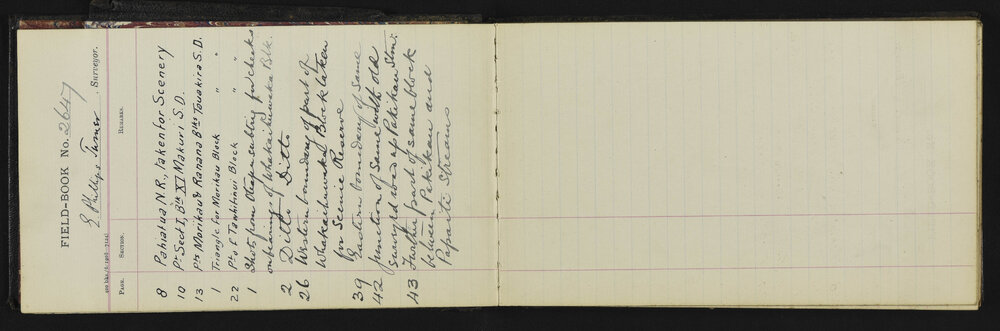 FIELD-BOOK No. 2647
E Phillips Turner, Surveyor.
200 bks./6/1905—7124]
PAGE. SECTION. REMARKS.
8 Pahiatua N.R., taken for Scenery
10 Pt Sect 1, Bk XI Makuri S.D.
13 Pts Morikau & Ranana Blks Tauakira S.D.
1 Triangle for Morikau Block " "
22 Pts of Tauhitinui Block " "
1 Shots from subtrig for checks
on bearings of Whakaihuwaka Blk.
2 Ditto Ditto
26 Western boundary of part of
Whakaihuwaka Block taken
for Scenic Reserve
39 Eastern boundary of same
42 Junction of same with old
surveyed road up Pakikau Stm:
43 Further part of same block
between Pakikau and
Papaiti Streams